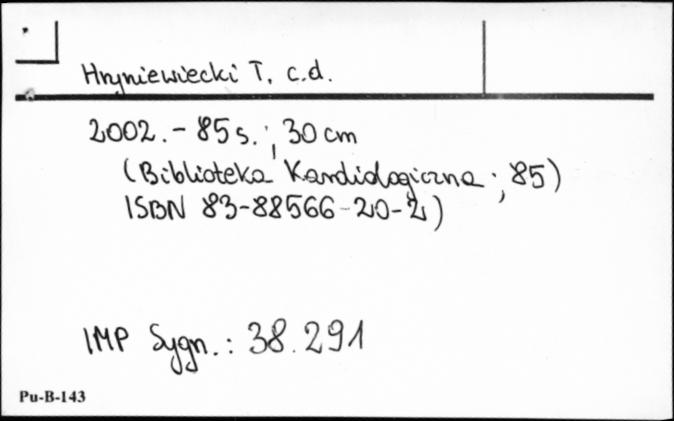 Hryniewiecki T. c.d.
2002. - 85 s. ; 30 cm
(Biblioteka Kardiologiczna ; 85)
ISBN 83-88566-20-2)
IMP Sygn.: 38.291
Pu-B-143